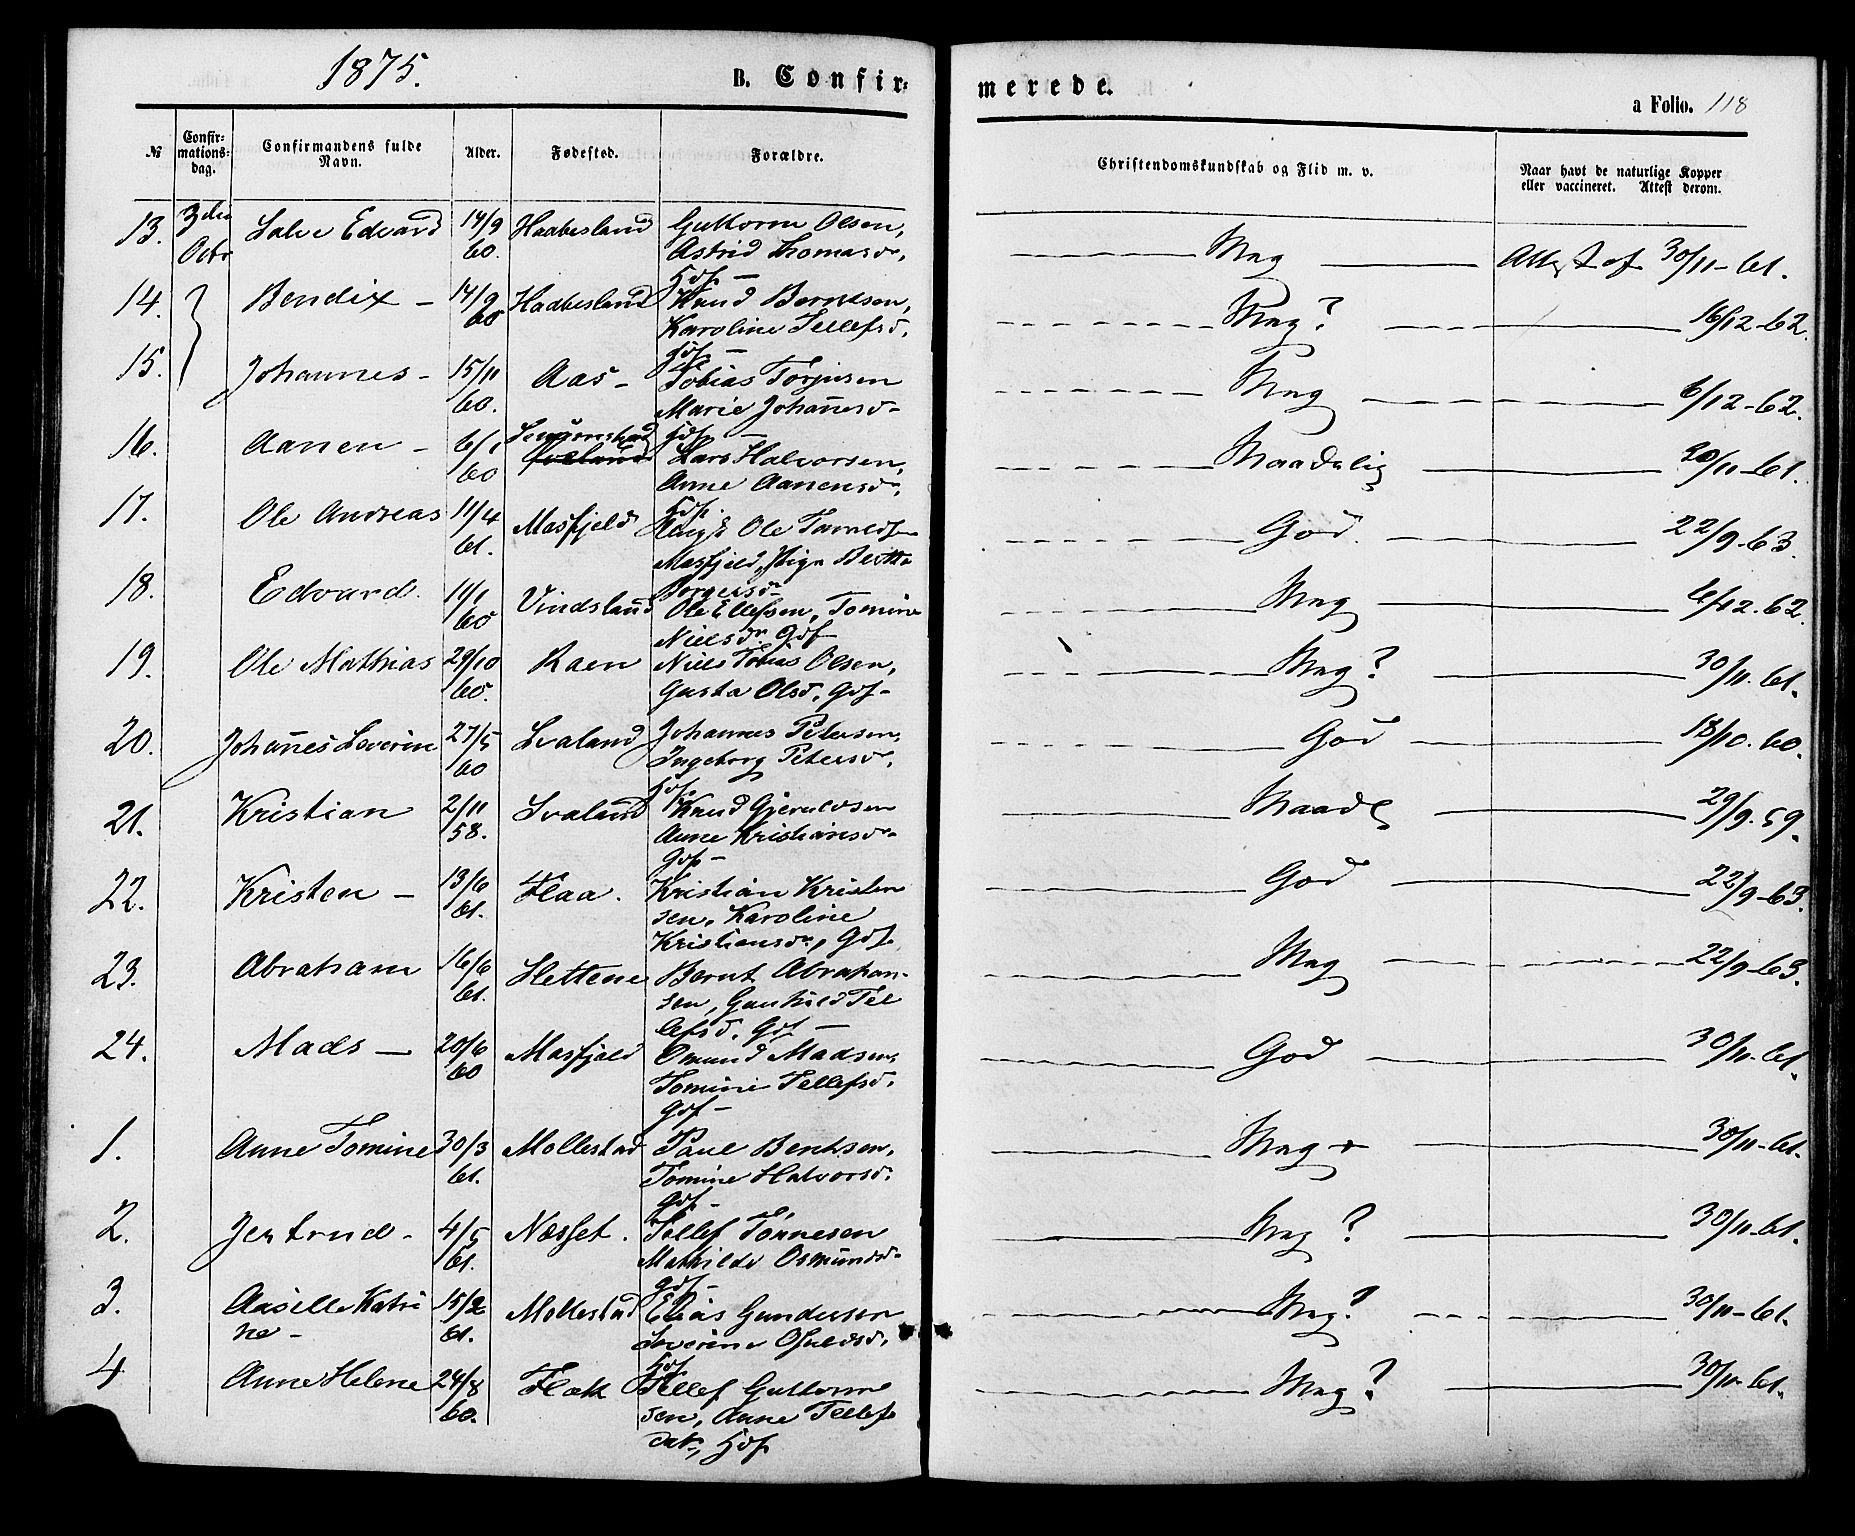 1875.
B. Confir=
merede.
a Folio. 118
№
Confir=
mations=
dag.
Confirmandens fulde
Navn.
Alder.
Fødested.
Forældre.
Christendomskundskab og Flid m. v.
Naar havt de naturlige Kopper
eller vaccineret. Attest derom.
13. 3die Salve Edvard 14/9 Haabesland Guttorm Olsen,
Octr 60. Astrid Thomasdr, Mag Attest af 30/11-61.
Gdf -
14. Bendix - 14/9 Haabesland Knud Berntsen, Mag? 16/12-62.
60 Karoline Tellefsd.
Gdf -
15. Johannes - 15/11 Aas - Tobias Torjusen Mag 6/12-62.
60. Marie Johañesd-
16. Aanen - 6/1 Gdf -
60 Lars Halvorsen, Maadelig 30/11-61.
Anne Aanensdr,
Gdf.
17. Ole Andreas 11/4 Masfjeld Ole God. 22/9-63.
61. Masfjeld, Pige Berthe
18. Edvard. 11/1 Vindsland Torgersdr
60 Ole Ellefsen, Tomine Mag 6/12.62.
Nielsdr. Gdf
19. Ole Mathias 29/10 Raen Niels Tobias Olsen, Mag? 30/11.61.
60. Gusta Olsd, Gdf-
20. Johañes Severin 27/5 Svaland Johannes Petersen, God 18/10.60.
60 Ingeborg Petersd.
Gdf.
21. Kristian 2/11 Svaland Knud Gjeruldsen Maadel 29/9.59.
58. Anne Kristiansdr-
Gdf-
22. Kristen - 13/6 Flaa. Kristian Kristen God 22/9-63.
61. sen, Karoline
Kristiansdr, Gdf.
23. Abraham 16/6 Hettene Bernt Abraham- Mag 22/9-63.
61. sen, Gunhild Tel
lefsd. Gdf -
24. Mads - 20/6 Masfjeld Omund Madsen, God 30/11-61.
60 Tomine Tellefsd.
Gdf -
1. Anne Tomine 30/3 Mollestad Paul Bentsen, Mag + 30/11-61.
61. Tomine Halvorsd.
Gdf -
2. Jertrud - 4/5 Næsset. Tellef Tønnesen Mag ? 30/11-61.
61. Mathilde Osmundsd-
Gdf -
3. Aasille Katri 15/2 Mollestad Elias Gundersen Mag? 30/11-61.
ne - 61. Severine Osuldsd.
Gdf
4 Anne Helene 24/8 Flak Tellef Guttorm Mag? 30/11-61.
60. sen, Anne Tellefs
datr, Gdf